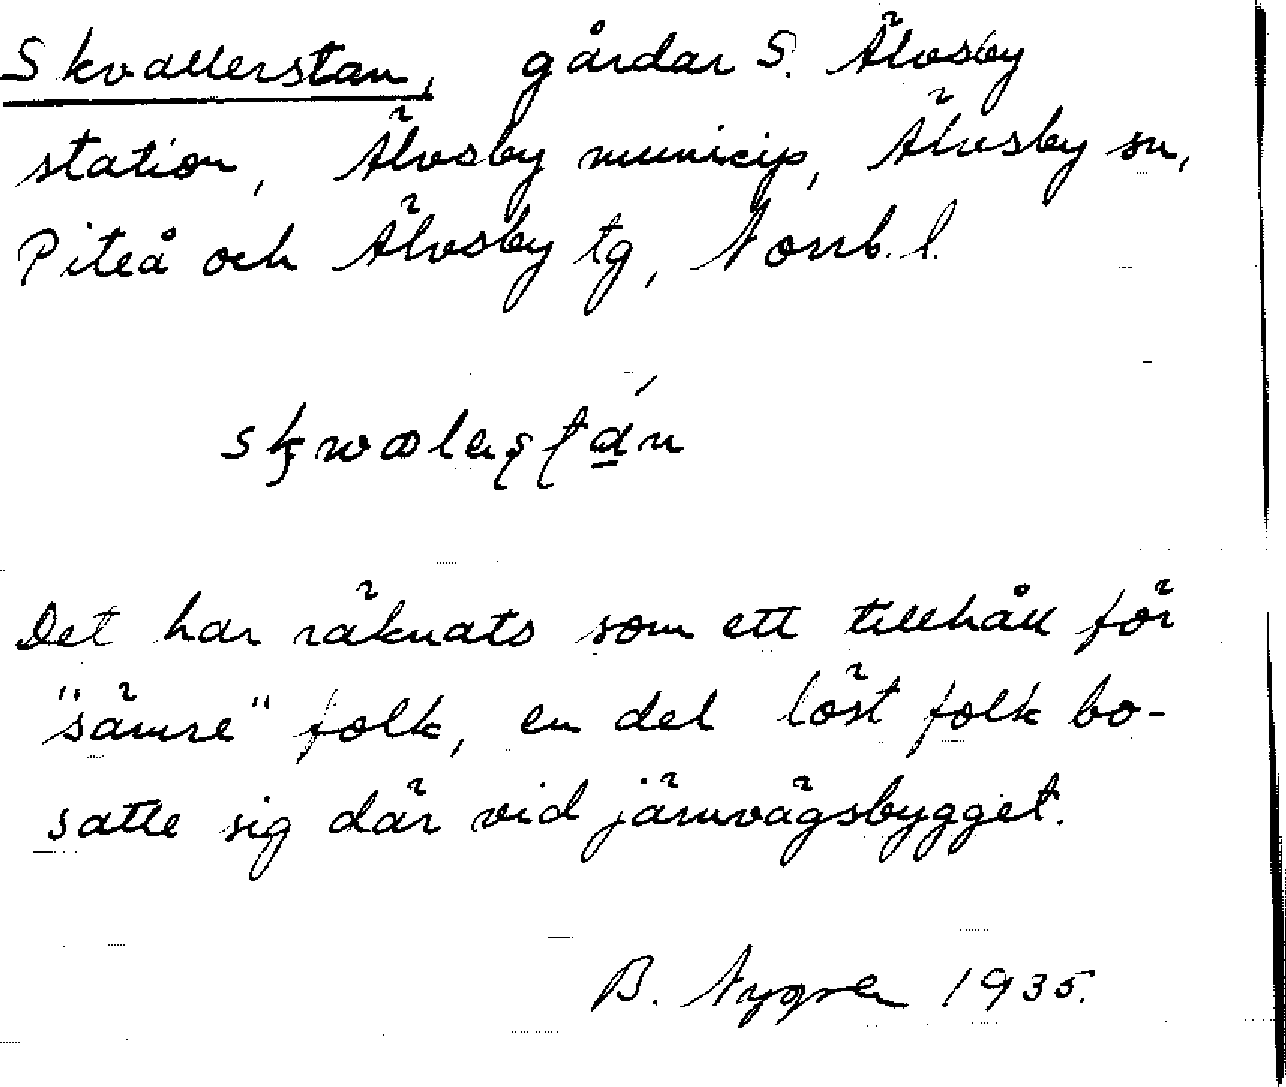 Skvallerstan, gårdar S. Älvsby
station, Älvsby municip, Älvsby sn,
Piteå och Älvsby tg, Norrb. l.
Det har räknats som ett tillhåll för
"sämre" folk, en del löst folk bo-
satte sig där vid järnvägsbygget.
B. Nygren 1935.